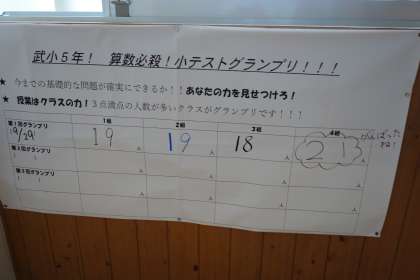 武小5年! 算数必殺!小テストグランプリ!!!
★ 今までの基礎的な問題が確実にできるか!!あなたの力を見せつけろ!
★ 授業はクラスの力!3点満点の人数が多いクラスがグランプリです!!!
1組 2組 3組 4組
第1回グランプリ
9/29 19人 19人 18人 21人
がんばったね!
第2回グランプリ
/ 人 人 人 人
第3回グランプリ
/ 人 人 人 人